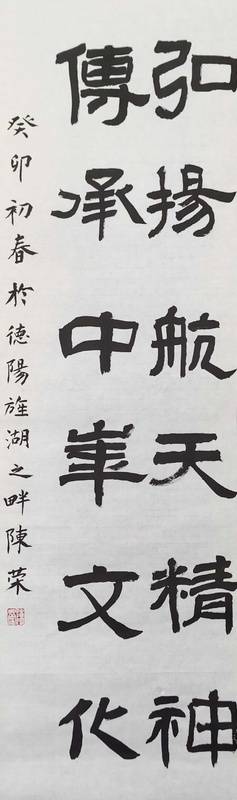 弘揚航天精神
傳承中華文化
癸卯初春於德陽旌湖之畔陳荣